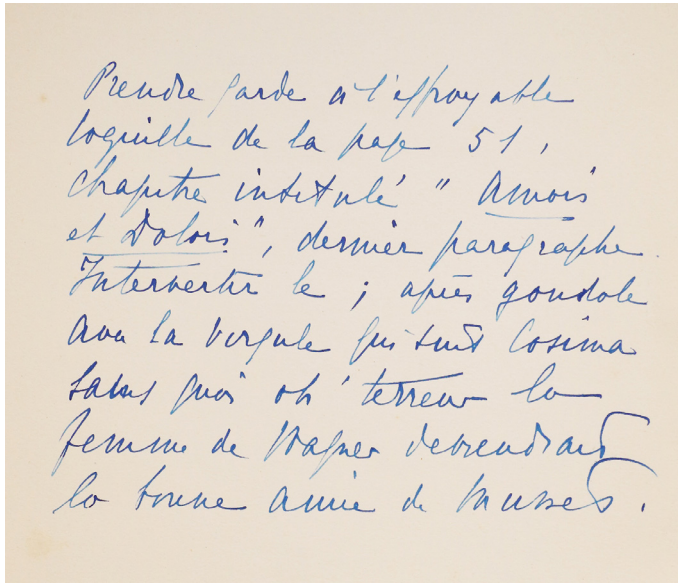 Prendre garde à l'effroyable
coquille de la page 51,
chapitre intitulé " Amois
et Dolois", dernier paragraphe
Intervertir le ; après gondole
avec la virgule qui suit Cosima
sans quoi oh ! terreur la
femme de Wagner deviendrait
la bonne amie de Musset.